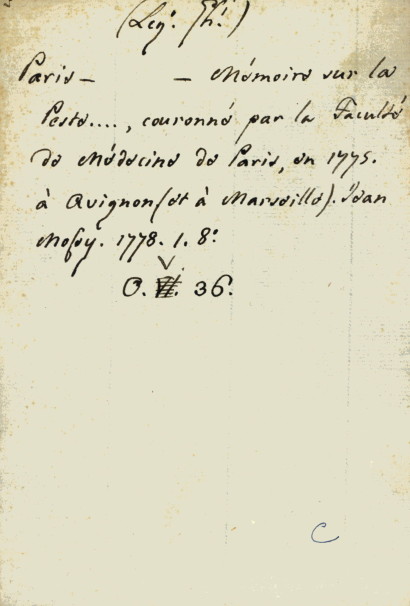 (Leg. Th.)
Paris — — Mémoire sur la
Peste...., couronné par la Faculté
de Médecine de Paris, en 1775.
à Avignon (et à Marseille). Jean
Mossy. 1778. 1. 8.°
V
O. 36.
C